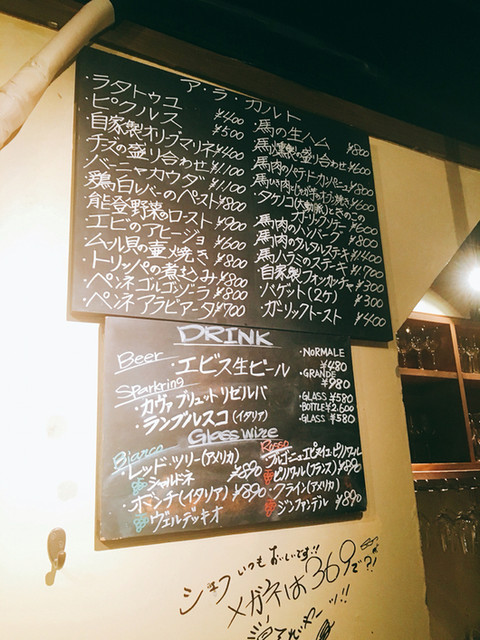 ア・ラ・カルト
・ラタトゥユ ¥400
・ピクルス ¥500
・自家製オリーブマリネ ¥400
・チーズの盛り合わせ ¥1,100
・バーニャカウダ ¥1,100
・鶏白レバーのペースト ¥800
・能登野菜のロースト ¥900
・エビのアヒージョ ¥600
・ムール貝の壷焼き ¥800
・トリッパの煮込み ¥800
・ペンネゴルゴンゾーラ ¥800
・ペンネアラビアータ ¥700
・馬の生ハム ¥800
・馬燻製の盛り合わせ ¥600
・馬肉のパテ・ド・カンパーニュ ¥800
・タケノコ(大動脈)ときのこの
ガーリックソテー ¥600
・馬肉のハンバーグ
・馬肉のタルタルステーキ ¥1,400
・馬ハラミのステーキ ¥1,700
・自家製フォカッチャ ¥300
・バゲット(2ケ) ¥300
・ガーリックトースト ¥400
DRINK
Beer
・エビス生ビール
・NORMALE
¥480
・GRANDE
¥980
Sparkring
・カヴァ ブリュット リゼルバ
・GLASS ¥580
・BOTTLE ¥2,600
・ランブルスコ(イタリア)
・GLASS ¥580
Glass wine
Bianco
・レッド・ツリー(アメリカ) ¥890
シャルドネ
・ボマンチ(イタリア) ¥890
ヴェルデッキオ
Rosso
ピノノワール(フランス) ¥890
・クライン(アメリカ)
ジンファンデル ¥890
シェフいつもおいしいです!!
メガネは369で?!